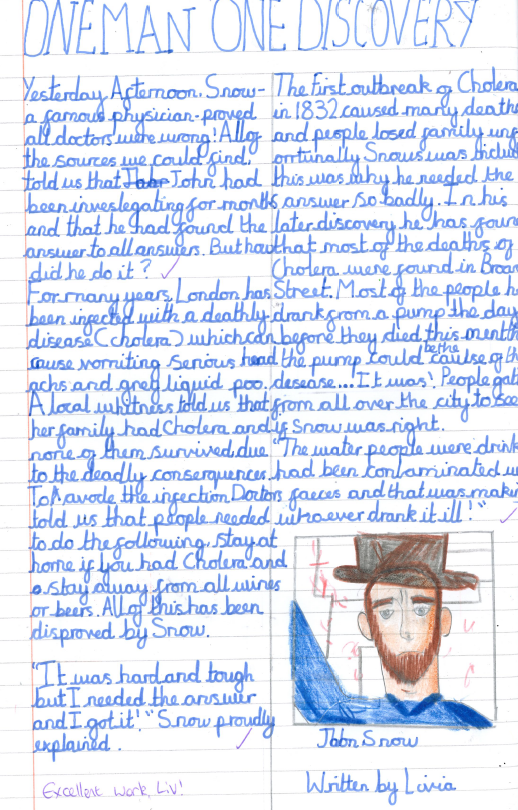 ONE MAN ONE DISCOVERY
Yesterday Afternoon, Snow-
a famous physician-proved
all doctors were wrong! All of
the sources we could find,
told us that John had
been inveslegating for months
and that he had found the
answer to all answers. But how
did he do it?
For many years, London has
been infected with a deathly
disease (cholera) which can
cause vomiting serious head
achs and grey liquid poo.
A local whitness told us that
her family had Cholera and
none of them survived due
to the deadly conserquences.
To avode the infection Doctors
told us that people needed
to do the following, stay at
home if you had Cholera and
stay away from all wines
or beers. All of this has been
disproved by Snow.
"It was hard and tough
but I needed the answer
and I got it!" Snow proudly
explained.
Excellent work, Liv!
The first outbreak of Cholera
in 1832 caused many deaths
and people losed family
ortinally Snows was
this was why he needed the
answer so badly. In his
later discovery he has
that most of the deaths of
Cholera were found in
Street. Most of the people
drank from a pump the day
before they died this
the pump could be the cause of
desease... It was! People
from all over the city to see
if Snow was right.
"The water people were
had been contaminated
faeces and that was
who ever drank it ill!"
John Snow
Written by Livia